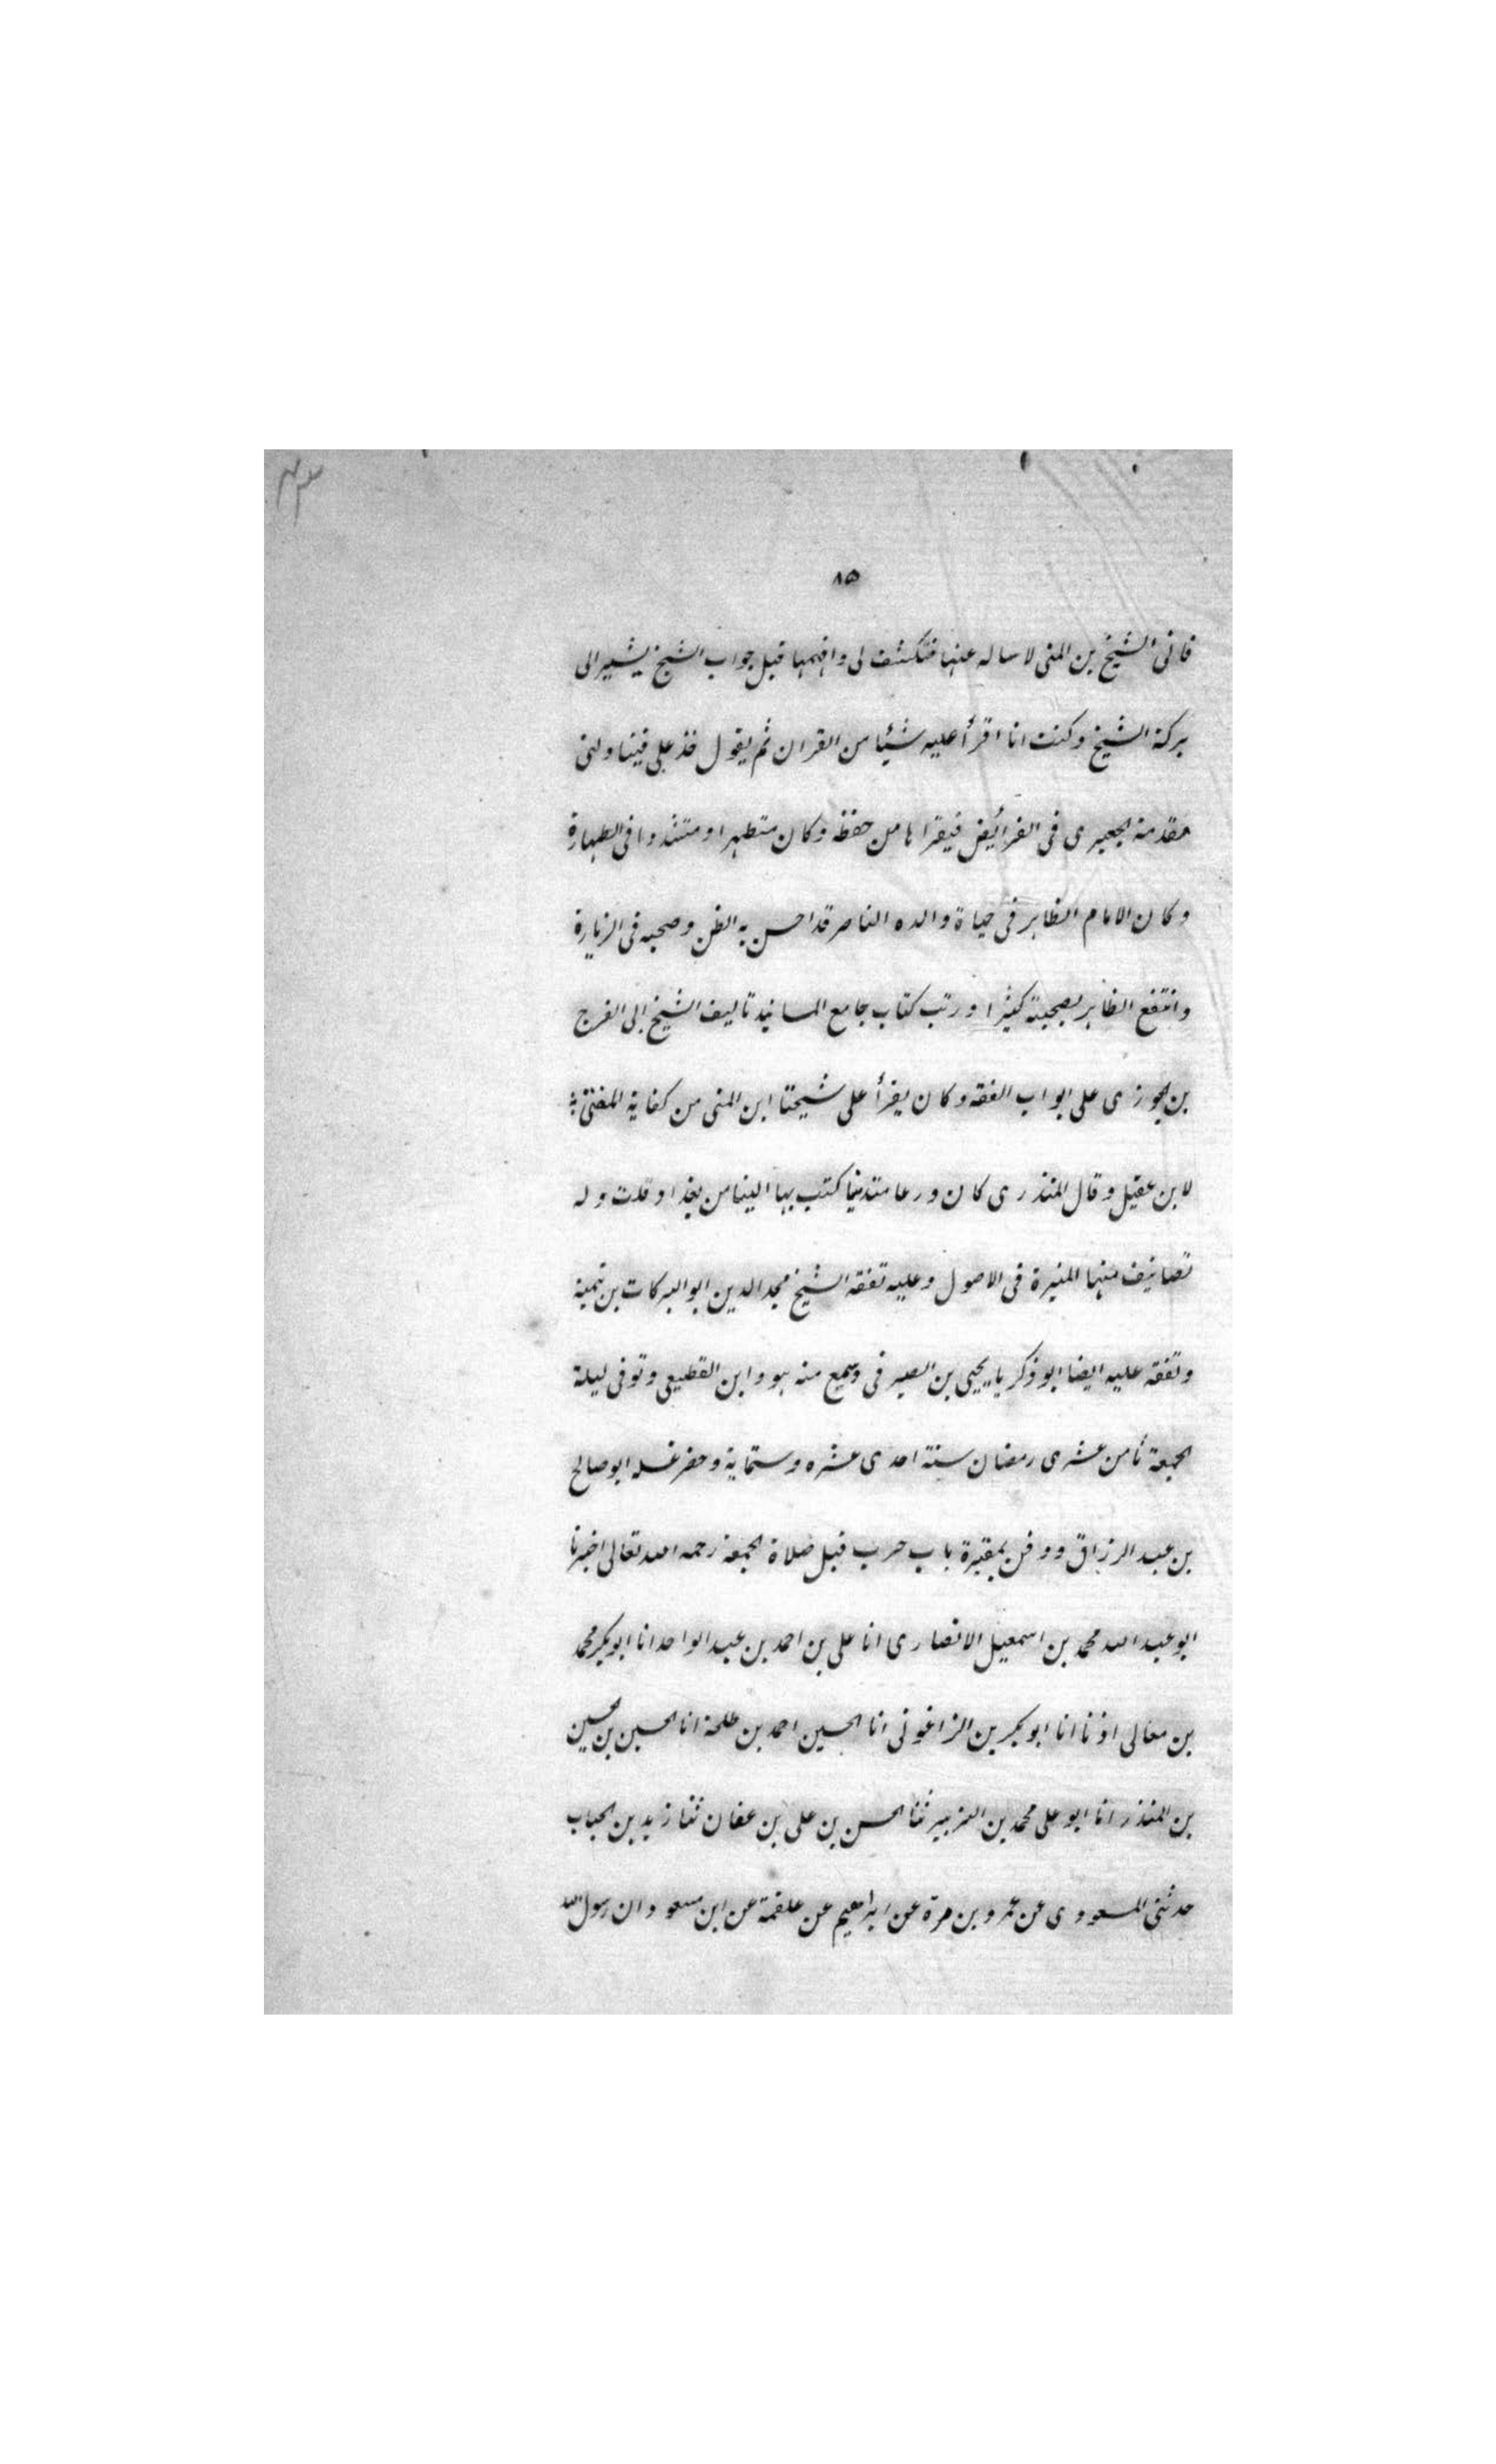 ٨٥
فاتى الشيخ بن المنى لاساله عنها فتكشف لى وافهمها قبل جواب الشيخ يشير الى
بركة الشيخ وكنت انا اقرأ عليه شيئا من القران ثم يقول خذ على فيناولنى
مقدمة الجعبرى فى الفرائض فيقراها من حفظه وكان متطهرا ومتشددا فى الطهارة
وكان الامام الظاهر فى حياة والده الناصر قد احسن به الظن وصحبه فى الزيارة
وانتفع الظاهر بصحبته كثيرا ورتب كتاب جامع المسانيد تاليف الشيخ ابى الفرج
بن جوزى على ابواب الفقه وكان يقرأ على شيخنا ابن المنى من كفاية المفتى
لابن عقيل وقال المنذرى كان ورعا متدينا كتب بها الينا من بغداد قلت وله
تصانيف منها المنيرة فى الاصول وعليه تفقه الشيخ مجد الدين ابو البركات بن تيمية
وتفقه عليه ايضا ابو ذكريا يحيى بن الصيرفى وسمع منه هو وابن القطيعى وتوفى ليلة
الجمعة ثامن عشرى رمضان سنة احدى عشره وستماية وحضر غسله ابو صالح
بن عبد الرزاق ودفن بمقبرة باب حرب قبل صلاة الجمعة رحمه الله تعالى اخبرنا
ابو عبد الله محمد بن اسمعيل الانصارى انا على بن احمد بن عبد الواحد انا ابوبكر محمد
بن معالى اذنا انا ابو بكر بن الزاغونى انا الحسين احمد بن طلحة انا الحسين بن الحسين
بن المنذر انا ابو على محمد بن الزبير ثنا الحسن بن على بن عفان ثنا زيد بن الحباب
حدثنى المسعودى عن عمرو بن مرة عن ابراهيم عن علقمة عن ابن مسعود ان رسول الله